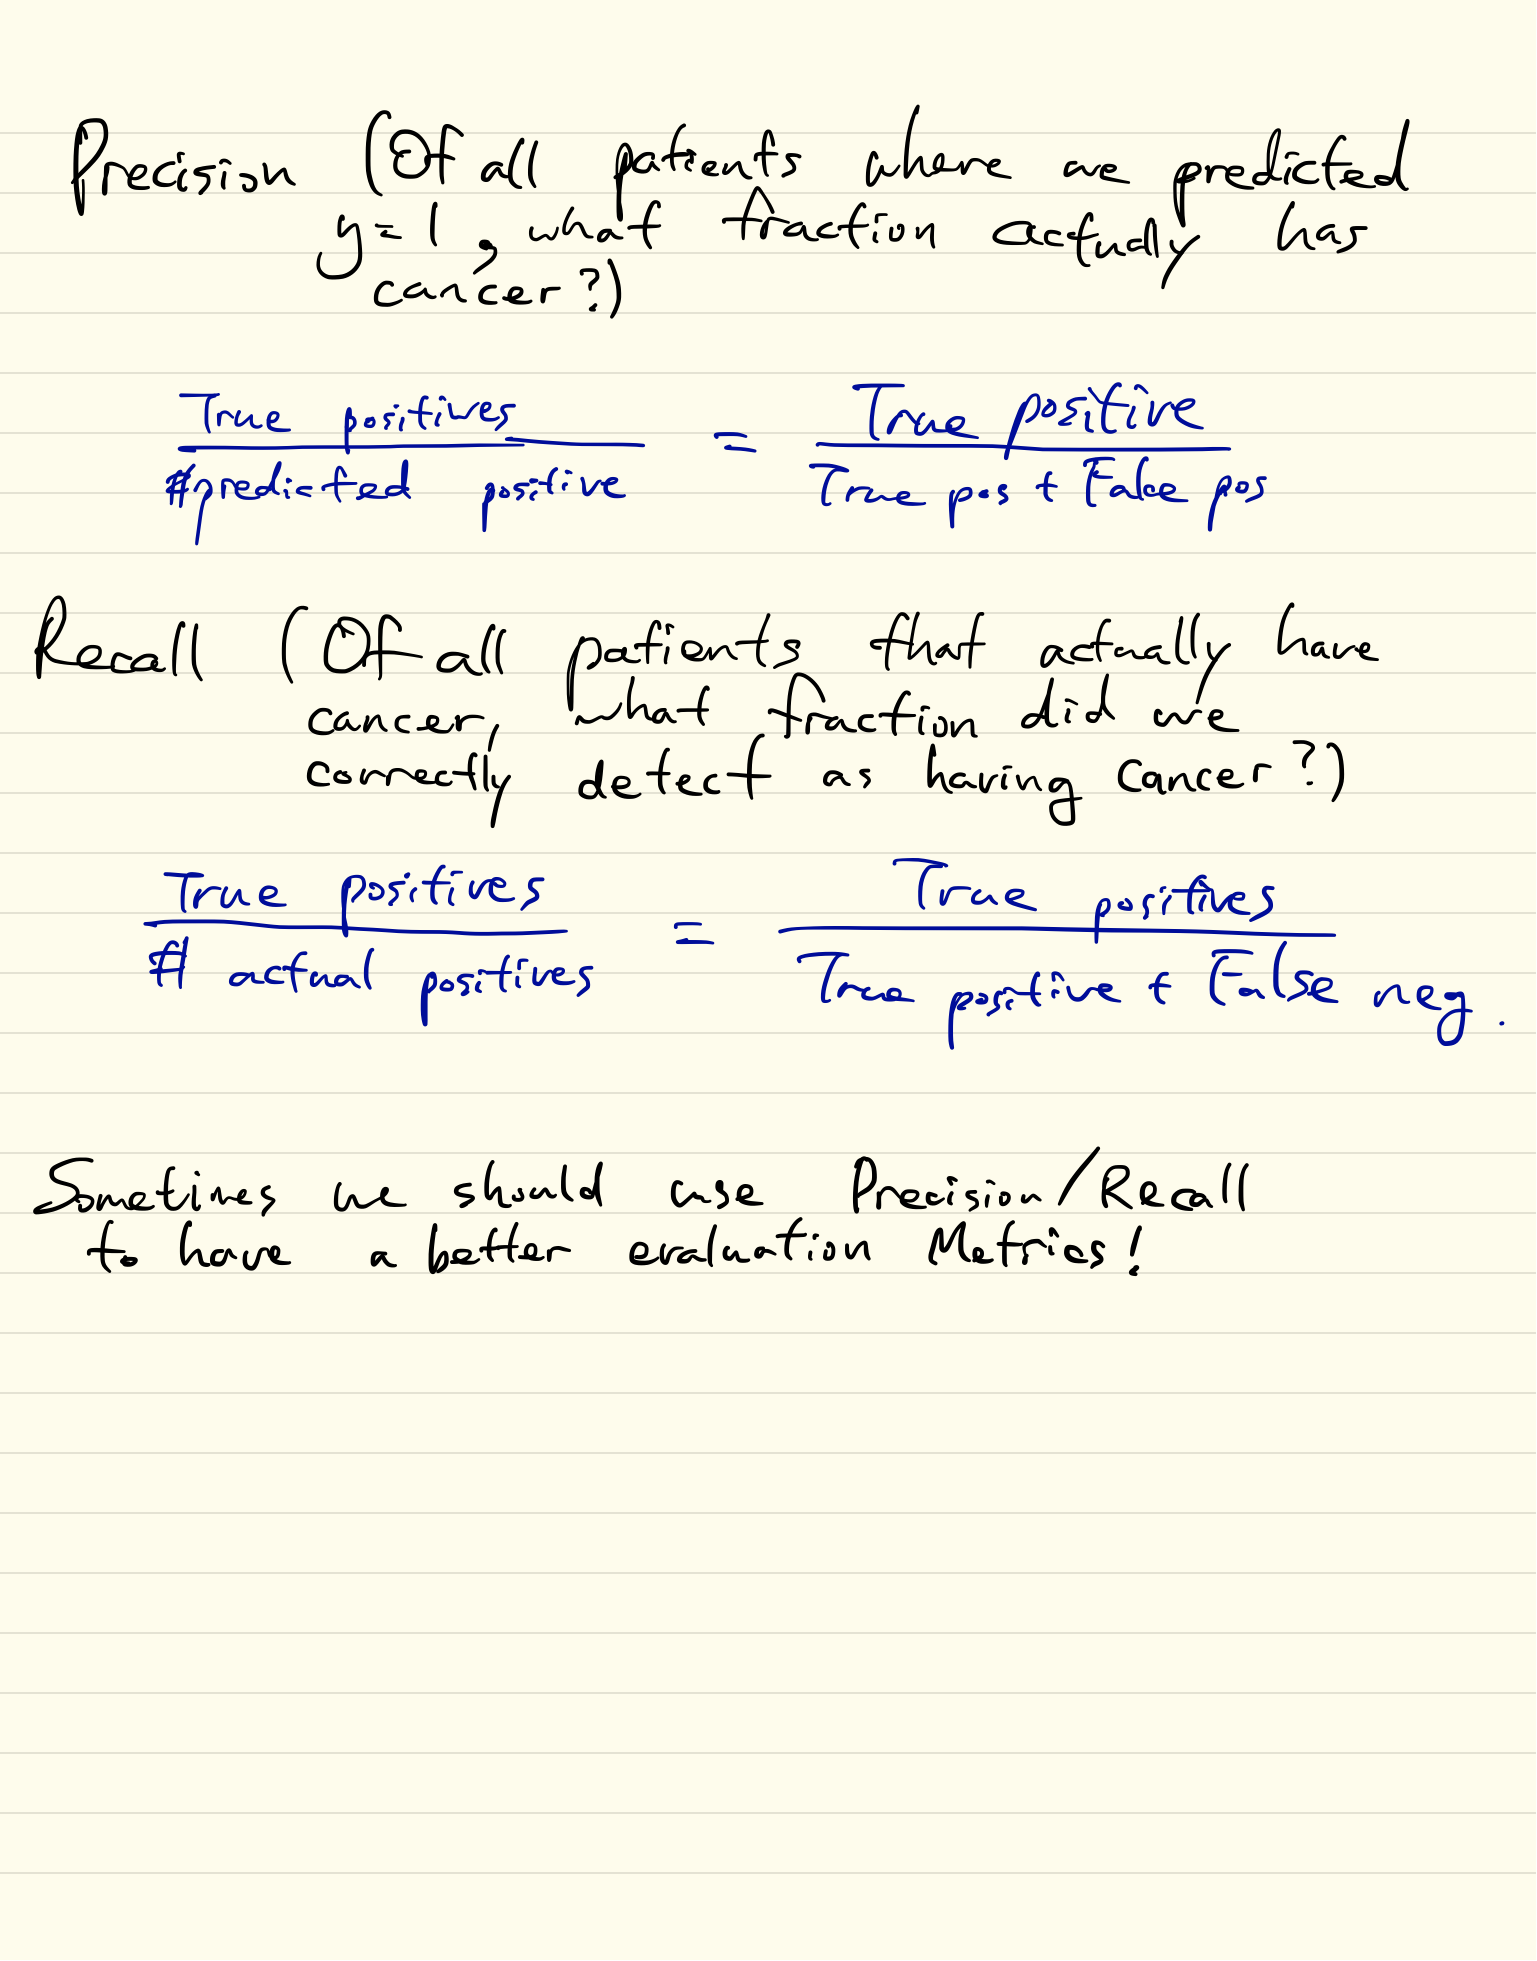 Precision (Of all patients where we predicted
y=1, what fraction actually has
cancer?)
True positives / #predicted positive = True positive / True pos + False pos
Recall (Of all patients that actually have
cancer, what fraction did we
correctly detect as having cancer?)
True positives / # actual positives = True positives / True positive + False neg.
Sometimes we should use Precision/Recall
to have a better evaluation Metrics!